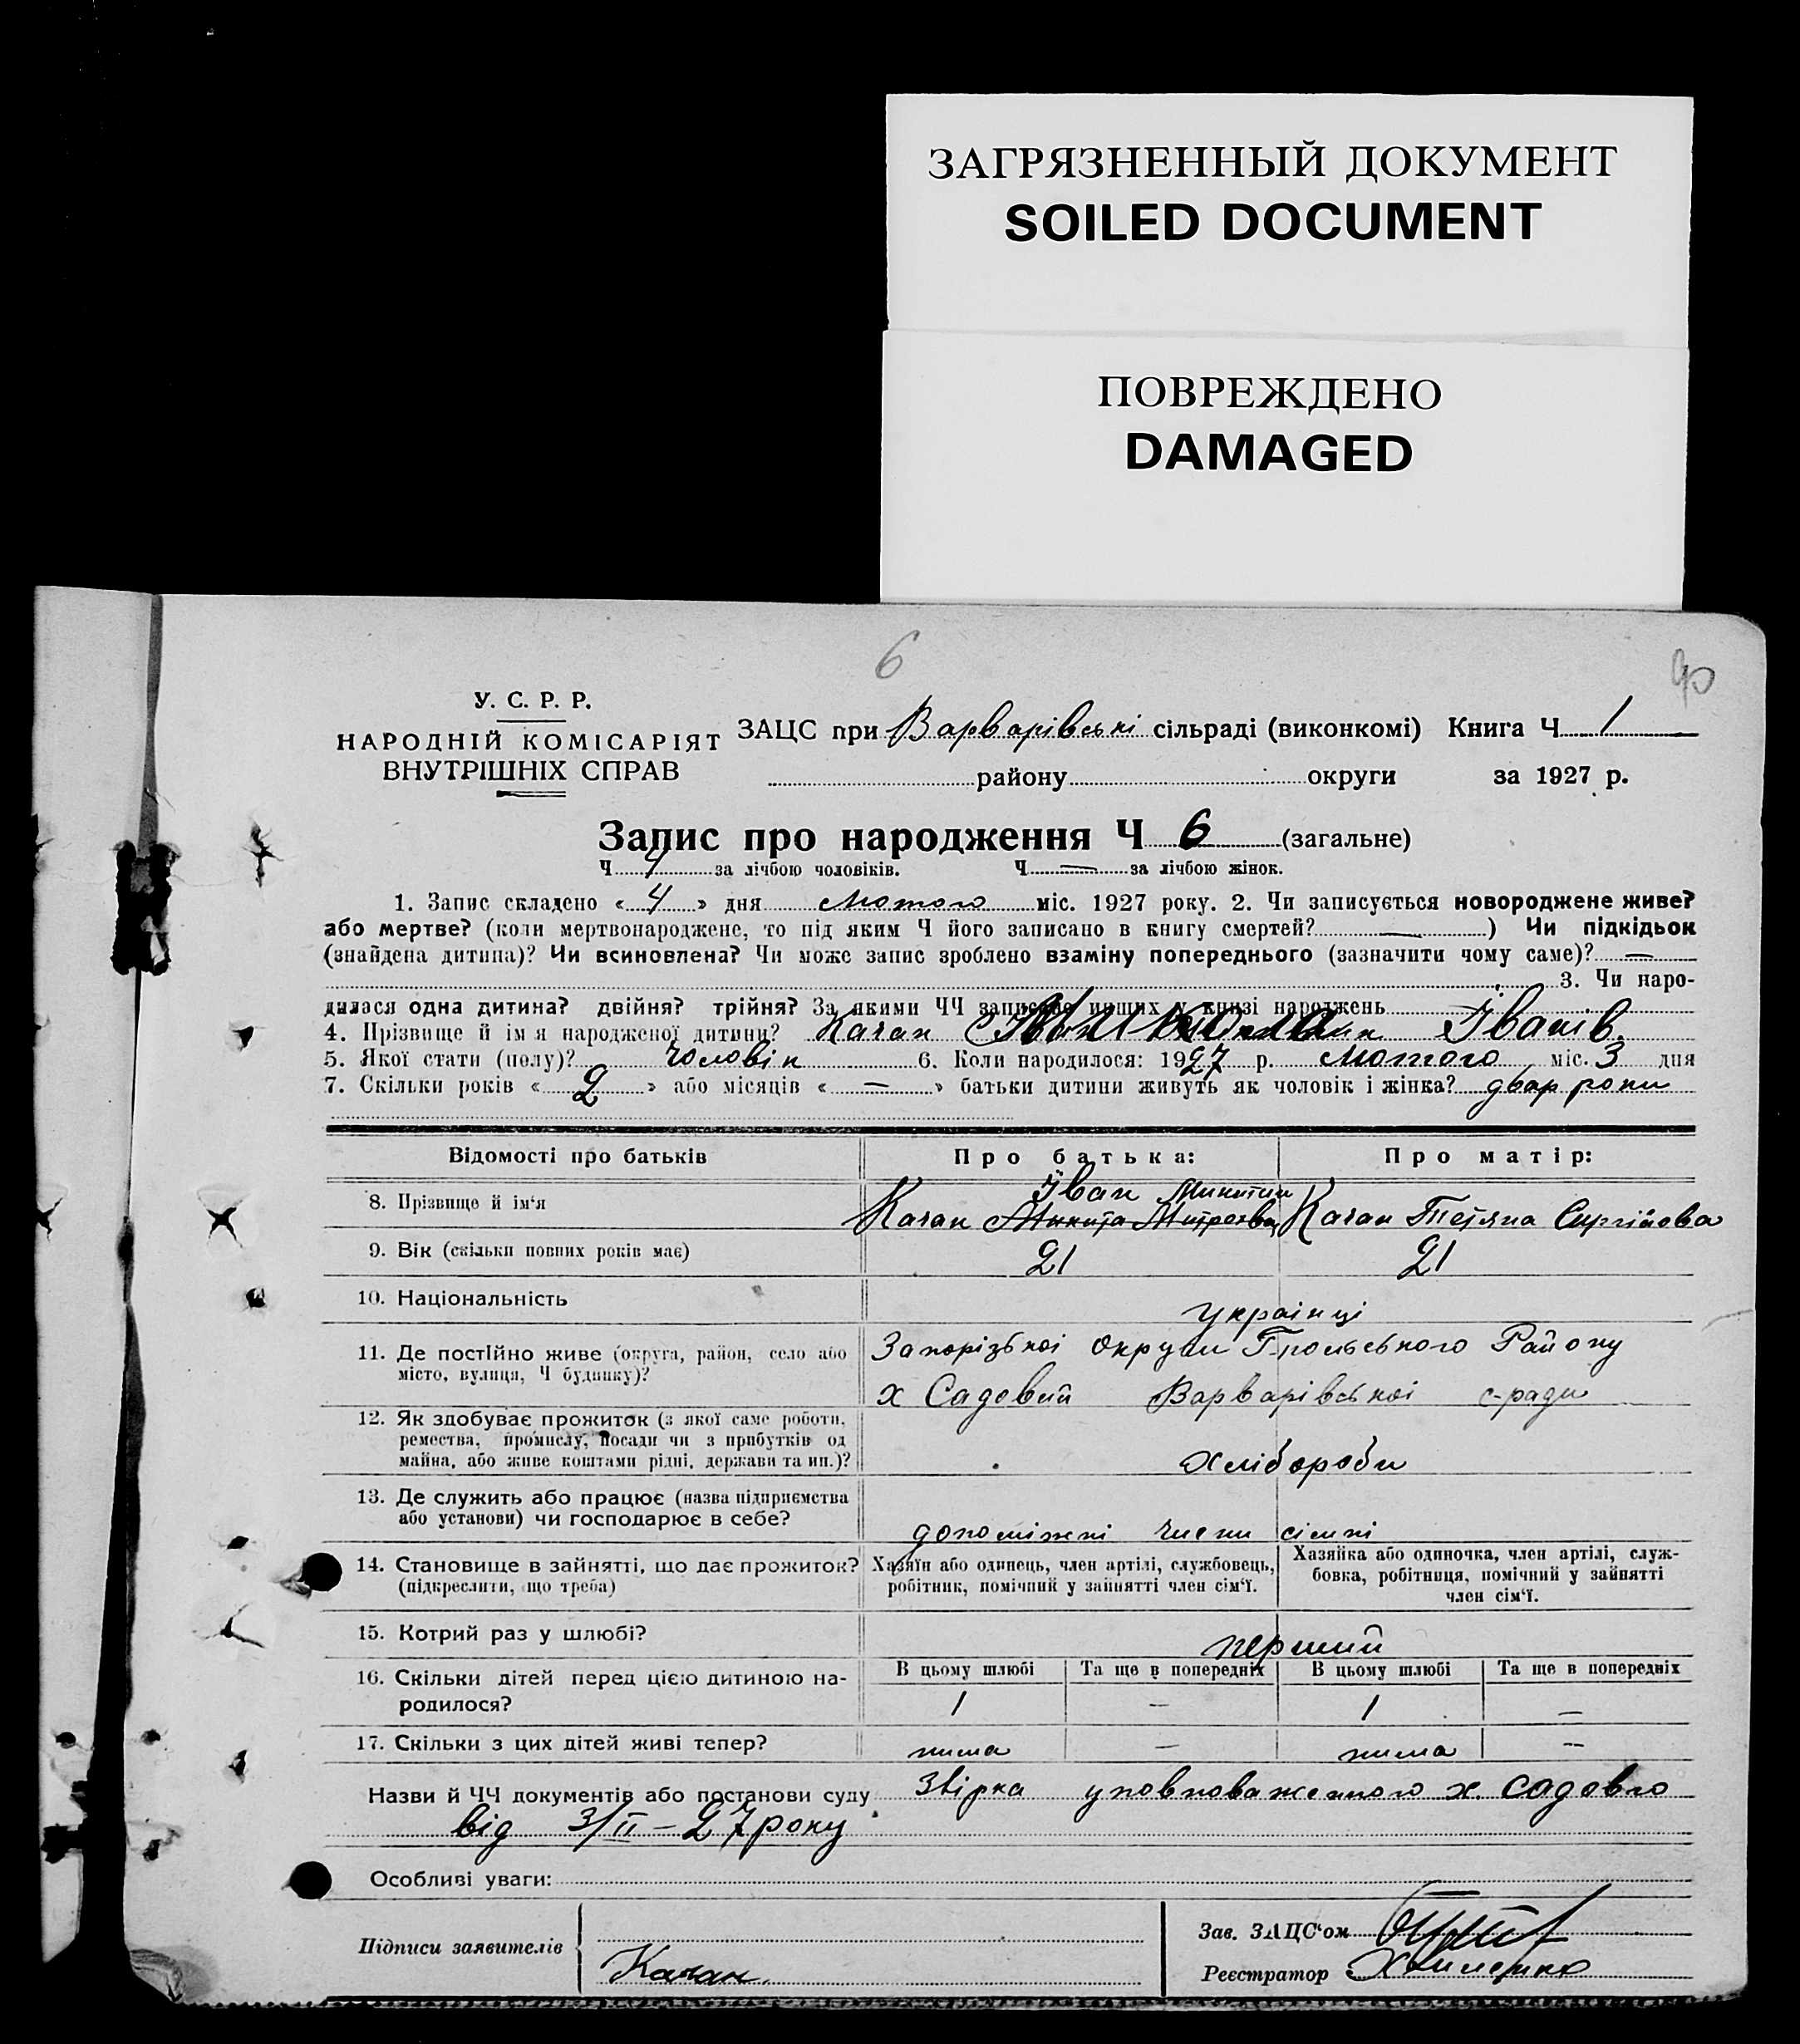 ЗАГРЯЗНЕННЫЙ ДОКУМЕНТ
SOILED DOCUMENT
ПОВРЕЖДЕНО
DAMAGED
6
90
У. С. Р. Р.
НАРОДНІЙ КОМІСАРІЯТ
ВНУТРІШНІХ СПРАВ
ЗАЦС при Варварівські сільраді (виконкомі) Книга Ч 1
району округи за 1927 р.
Запис про народження Ч 6 (загальне)
Ч 4 за лічбою чоловіків. Ч — за лічбою жінок.
1. Запис складено « 4 » дня Лютого міс. 1927 року. 2. Чи записується новороджене живе?
або мертве? (коли мертвонароджене, то під яким Ч його записано в книгу смертей? — ) Чи підкідьок
(знайдена дитина)? Чи всиновлена? Чи може запис зроблено взаміну попереднього (зазначити чому саме)? —
3. Чи наро-
дилася одна дитина? двійня? трійня? За якими ЧЧ записано инших у книзі народжень
4. Прізвище й ім'я народженої дитини? Качан Іванів
5. Якої стати (полу)? Чоловік 6. Коли народилося: 1927 р. Лютого міс. 3 дня
7. Скільки років « 2 » або місяців « — » батьки дитини живуть як чоловік і жінка? два роки
Відомості про батьків Про батька: Про матір:
Іван Микитин
8. Прізвище й ім'я Качан Микита Качан Тетяна Сиргійова
9. Вік (скільки повних років має) 21 21
10. Національність українці
11. Де постійно живе (округа, район, село або Запорізької округи Района
місто, вулиця, Ч будинку)? х Садовий Варварівської с-ради
12. Як здобуває прожиток (з якої саме роботи,
ремества, промислу, посади чи з прибутків од
майна, або живе коштами рідні, держави та ин.)? хлібороби
13. Де служить або працює (назва підприємства
або установи) чи господарює в себе? допоміжні члени сімї
14. Становище в зайнятті, що дає прожиток? Хазяїн або одинець, член артілі, службовець, Хазяйка або одиночка, член артілі, служ-
(підкреслити, що треба) робітник, помічний у зайнятті член сім'ї. бовка, робітниця, помічний у зайнятті
член сім'ї.
15. Котрий раз у шлюбі? перший
16. Скільки дітей перед цією дитиною на- В цьому шлюбі Та ще в попередніх В цьому шлюбі Та ще в попередніх
родилося? 1 — 1 —
17. Скільки з цих дітей живі тепер? нима — нима —
Назви й ЧЧ документів або постанови суду Звірка уповноваженого х. Садовго
від 3/II – 27 року
Особливі уваги:
Підписи заявителів Качан.
Зав. ЗАЦС'ом
Реєстратор